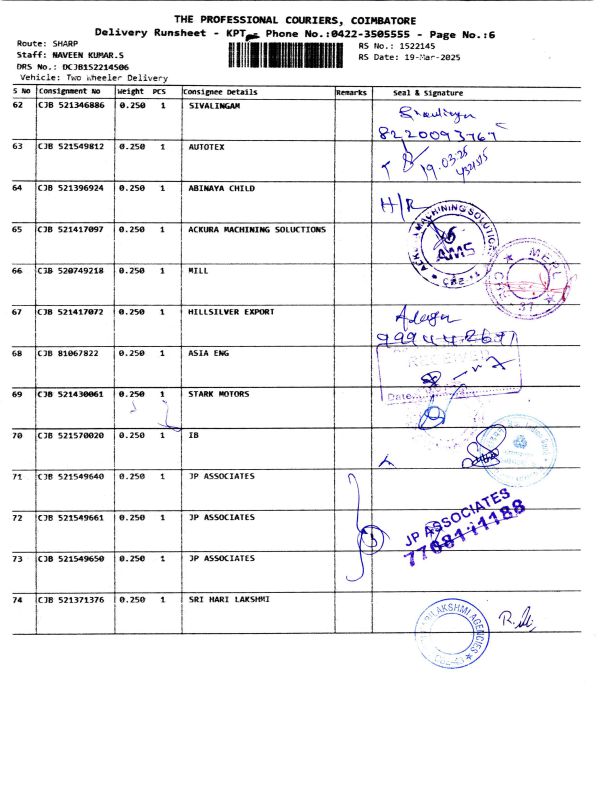 THE PROFESSIONAL COURIERS, COIMBATORE
Delivery Runsheet - KPT Phone No.:0422-3505555 - Page No.:6
Route: SHARP
RS No.: 1522145
Staff: NAVEEN KUMAR.S
RS Date: 19-Mar-2025
DRS No.: DCJB152214506
Vehicle: Two Wheeler Delivery
S No Consignment No Weight PCS Consignee Details Remarks Seal & Signature
62 CJB 521346886 0.250 1 SIVALINGAM
8220093767
63 CJB 521549812 0.250 1 AUTOTEX
19.03.25
64 CJB 521396924 0.250 1 ABINAYA CHILD
H/R
65 CJB 521417097 0.250 1 ACKURA MACHINING SOLUCTIONS
MACHINING SOLUTIONS
AMS
CBE
66 CJB 520749218 0.250 1 MILL
67 CJB 521417072 0.250 1 HILLSILVER EXPORT
68 CJB 81067822 0.250 1 ASIA ENG
Received
Date
69 CJB 521430061 0.250 1 STARK MOTORS
70 CJB 521570020 0.250 1 IB
71 CJB 521549640 0.250 1 JP ASSOCIATES
72 CJB 521549661 0.250 1 JP ASSOCIATES
3
JP ASSOCIATES
73 CJB 521549650 0.250 1 JP ASSOCIATES
74 CJB 521371376 0.250 1 SRI HARI LAKSHMI
LAKSHMI AGENCIES